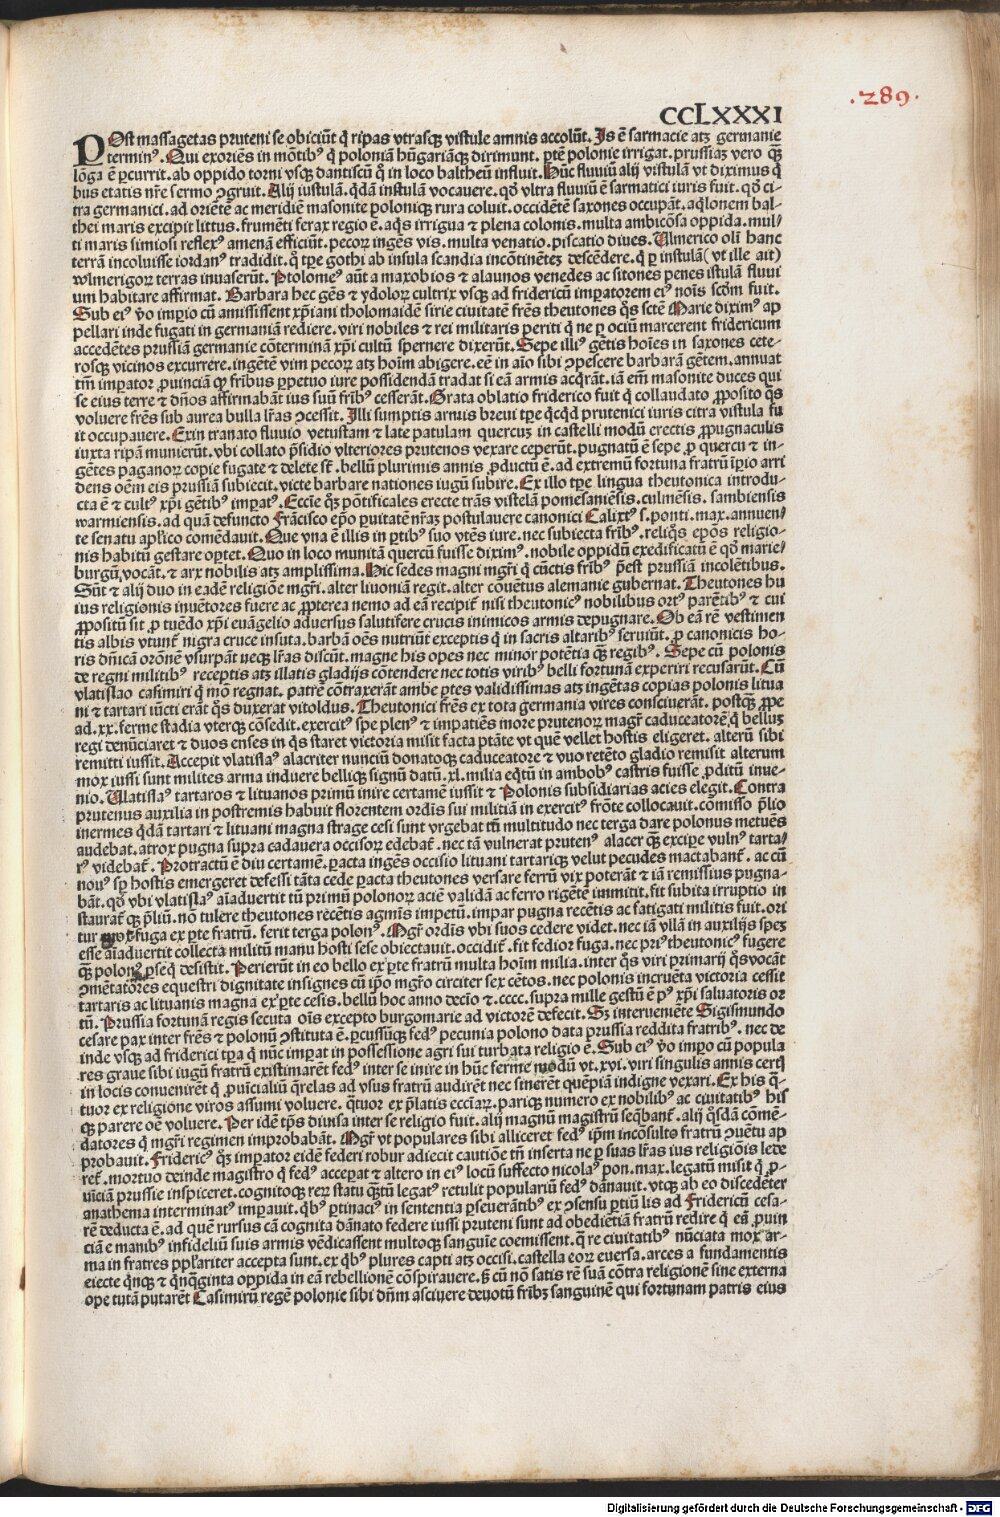 .289.
CCLXXXI
POst massagetas pruteni se obiciũt q̃ ripas vtrasqꝫ vistule amnis accolũt. Is ē sarmacie atqꝫ germanie
terminꝰ. Qui exoriẽs in mõtibꝰ q̃ poloniã hũgariãqꝫ dirimunt. ptẽ polonie irrigat. prussiaꝫ vero q̃ꝫ
lõga ē ꝑcurrit. ab oppido torni vsqꝫ dantiscũ q̃ in loco baltheũ influit. Hũc fluuiũ alij vistulã vt diximus q̃
bus etatis nr̃e sermo ꝯgruit. Alij iustulã. q̃dã instulã vocauere. qđ vltra fluuiũ ē sarmatici iuris fuit. qđ ci-
tra germanici. ad oriẽtẽ ac meridiẽ masonite polonicqꝫ rura coluit. occidẽtẽ saxones occupãt. aq̃lonem bal-
thei maris excipit littus. frumẽti ferax regio ē. aq̃s irrigua ⁊ plena colonis. multa ambicõsa oppida. mul-
ti maris simiosi reflexꝰ amenã efficiũt. pecorꝝ ingẽs vis. multa venatio. piscatio diues. Vlmerico oli hanc
terrã incoluisse iordanꝰ tradidit. q̃ tꝑe gothi ab insula scandia incõtinẽteꝫ descẽdere. q̃ ꝑ instulã (vt ille ait)
wlmerigorꝝ terras inuaserũt. Ptolomeꝰ aũt a maxobios ⁊ alaunos venedes ac sitones penes istulã fluui
um habitare affirmat. Barbara hec gẽs ⁊ ydolorꝝ cultrix vsqꝫ ad fridericũ imꝑatorem eiꝰ noĩs scđm fuit.
Sub eiꝰ v̊o imꝑio cũ amississent xp̃iani tholomaidẽ sirie ciuitatẽ fr̃es theutones q̃s scte Marie diximꝰ ap
pellari inde fugati in germaniã rediere. viri nobiles ⁊ rei militaris periti q̃ ne ꝑ ociũ marcerent fridericum
accedẽtes prussiã germanie cõterminã xp̃i cultũ spernere dixerũt. Sepe illiꝰ gẽtis hoĩes in saxones cete-
rosqꝫ vicinos excurrere. ingẽtẽ vim pecorꝝ atqꝫ hoĩm abigere. eẽ in aĩo sibi ꝯpescere barbarã gẽtem. annuat
tm̃ imꝑator ꝓuinciã qꝫ fr̃ibus ꝑpetuo iure possidendã tradat si eã armis acq̃rãt. iã em̃ masonite duces qui
se eius terre ⁊ dños affirmabãt ius suũ fr̃ibꝰ cesserãt. Grata oblatio friderico fuit q̃ collaudato ꝓposito q̃s
voluere fr̃es sub aurea bulla lr̃as ꝯcessit. Illi sumptis armis breui tꝑe q̃cq̃d prutenici iuris citra vistula fu
it occupauere. Exin tranato fluuio vetustam ⁊ late patulam quercuꝫ in castelli modũ erectis ꝓpugnaculis
iuxta ripã munierũt. vbi collato p̃sidio vlteriores prutenos vexare ceperũt. pugnatũ ē sepe ꝓ quercu ⁊ in-
gẽtes paganorꝝ copie fugate ⁊ delete st̃. bellũ plurimis annis ꝓductũ ē. ad extremũ fortuna fratrũ ĩꝑio arri
dens oẽm eis prussiã subiecit. victe barbare nationes iugũ subire. Ex illo tꝑe lingua theutonica introdu-
cta ē ⁊ cultꝰ xp̃i gẽtibꝰ imꝑatꝰ. Eccl̃ie q̃ꝫ põtificales erecte trãs vistelã pomesaniẽsis. culmẽsis. sambiensis
warmiensis. ad quã defuncto Frãcisco ep̃o ꝑuitatẽ nr̃aꝫ postulauere canonici Calixtꝰ s. ponti. max. annuen/
te senatu apl̃ico comẽdauit. Que vna ē illis in ꝑtibꝰ suo vtẽs iure. nec subiecta fr̃ibꝰ. reliq̃s ep̃os religio-
nis habitũ gestare oꝑtet. Quo in loco munitã quercũ fuisse diximꝰ. nobile oppidũ exedificatũ ē qđ marie/
burgũ vocãt. ⁊ arx nobilis atqꝫ amplissima. Hic sedes magni mgr̃i q̃ cũctis fr̃ibꝰ p̃est prussiã incolẽtibus.
Sũt ⁊ alij duo in eadẽ religiõe mgr̃i. alter liuoniã regit. alter cõuẽtus alemanie gubernat. Theutones hu
ius religionis inuẽtores fuere ac ꝓpterea nemo ad eã recipit̃ nisi theutonicꝰ nobilibus ortꝰ parẽtibꝰ ⁊ cui
ꝓpositũ sit ꝓ tuẽdo xp̃i euãgelio aduersus salutifere crucis inimicos armis depugnare. Ob eã rẽ vestimen
tis albis vtunt̃ nigra cruce insuta. barbã oẽs nutriũt exceptis q̃ in sacris altaribꝰ seruiũt. ꝓ canonicis ho-
ris dñicã orõnẽ vsurpãt necqꝫ lr̃as discũt. magne his opes nec minor potẽtia q̃ꝫ regibꝰ. Sepe cũ polonis
de regni militibꝰ receptis atqꝫ illatis gladijs cõtendere nec totis viribꝰ belli fortunã experiri recusarũt. Cũ
vlatislao casimiri q̃ mõ regnat. patre cõtraxerãt ambe ꝑtes validissimas atqꝫ ingẽtas copias polonis litua
ni ⁊ tartari iũcti erãt q̃s duxerat vitoldus. Theutonici fr̃es ex tota germania vires consciuerãt. postq̃ꝫ ꝓpe
ad .xx. ferme stadia vterqꝫ cõsedit. exercitꝰ spe plenꝰ ⁊ impatiẽs more prutenorꝝ magr̃ caduceatorẽ q̃ belluꝫ
regi denũciaret ⁊ duos enses in q̃s staret victoria misit facta ptãte vt quẽ vellet hostis eligeret. alterũ sibi
remitti iussit. Accepit vlatislaꝰ alacriter nunciũ donatoqꝫ caduceatore ⁊ vuo retẽto gladio remisit alterum
mox iussi sunt milites arma induere bellicqꝫ signũ datũ. xl. milia eq̃tũ in ambobꝰ castris fuisse ꝓditũ inue-
nio. Vlatislaꝰ tartaros ⁊ lituanos primũ inire certamẽ iussit ⁊ Polonis subsidiarias acies elegit. Contra
prutenus auxilia in postremis habuit florentem ordĩs sui militiã in exercitꝰ frõte collocauit. cõmisso p̃lio
inermes q̃dã tartari ⁊ lituani magna strage cesi sunt vrgebat tm̃ multitudo nec terga dare polonus metuẽs
audebat. atrox pugna supra cadauera occisorꝝ edebat̃. nec tã vulnerat prutenꝰ alacer q̃ꝫ excipe vulnꝰ tarta/
rꝰ videbat̃. Protractũ ē diu certamẽ. ꝑacta ingẽs occisio lituani tartaricqꝫ velut pecudes mactabant̃. ac cũ
nouꝰ sꝑ hostis emergeret defessi tãta cede ꝑacta theutones versare ferrũ vix poterãt ⁊ iã remissius pugna-
bãt. qđ vbi vlatislaꝰ aĩaduertit tũ primũ polonorꝝ aciẽ validã ac ferro rigẽtẽ immitit. fit subita irruptio in
staurat̃ qꝫ p̃liũ. nõ tulere theutones recẽtis agmĩs impetũ. impar pugna recẽtis ac fatigati militis fuit. ori
tur mox fuga ex ꝑte fratrũ. ferit terga polonꝰ. Mgr̃ ordĩs vbi suos cedere videt. nec iã vllã in auxilijs speꝫ
esse aĩaduertit collecta militũ manu hosti sese obiectauit. occidit̃. fit fedior fuga. nec priꝰ theutonicꝰ fugere
q̃ꝫ polonꝰ ꝑseq̃ desistit. Perierũt in eo bello ex ꝑte fratrũ multa hoĩm milia. inter q̃s viri primarij q̃s vocãt
ꝯmẽtatores equestri dignitate insignes cũ ip̃o mgr̃o circiter sex cẽtos. nec polonis incruẽta victoria cessit
tartaris ac lituanis magna ex ꝑte cesis. bellũ hoc anno decĩo ⁊ .cccc. supra mille gestũ ē pꝰ xp̃i saluatoris or
tũ. Prussia fortunã regis secuta oĩs excepto burgomarie ad victorẽ defecit. Sꝫ interueniẽte Sigismundo
cesare pax inter fr̃es ⁊ polonũ ꝯstituta ē. ꝑcussũqꝫ fedꝰ pecunia polono data prussia reddita fratribꝰ. nec de
inde vsqꝫ ad friderici tꝑa q̃ nũc imꝑat in possessione agri sui turbata religio ē. Sub eiꝰ v̊o imꝑo cũ popula
res graue sibi iugũ fratrũ existimarẽt fedꝰ inter se inire in hũc ferme modũ vt .xvi. viri singulis annis certo
in locis conuenirẽt q̃ ꝓuĩcialiũ q̃relas ad vsus fratrũ audirẽt nec sinerẽt quẽpiã indigne vexari. Ex his q̃-
tuor ex religione viros assumi voluere. q̃tuor ex p̃latis eccl̃iarꝝ. pariqꝫ numero ex nobilibꝰ ac ciuitatibꝰ his
qꝫ parere oẽ voluere. Per idẽ tp̃s diuisa inter se religio fuit. alij magnũ magistrũ seq̃bant̃. alij q̃sdã cõmẽ-
datores q̃ mgr̃i regimen improbabãt. Mgr̃ vt populares sibi alliceret fedꝰ ip̃m incõsulto fratrũ ꝯuẽtu ap
probauit. Fridericꝰ q̃ꝫ imꝑator eidẽ federi robur adiecit cautiõe tñ inserta ne ꝑ suas lr̃as ius religiõis lede
ret̃. mortuo deinde magistro q̃ fedꝰ acceꝑat ⁊ altero in eiꝰ locũ suffecto nicolaꝰ pon. max. legatũ misit q̃ ꝓ-
uĩciã prussie inspiceret. cognitoqꝫ rerꝝ statu q̃ꝫtũ legatꝰ retulit populariũ fedꝰ dãnauit. vtqꝫ ab eo discedẽter
anathema interminatꝰ imꝑauit. q̃bꝰ ꝑtinaciꝰ in sententia ꝑseuerãtibꝰ ex ꝯsensu ꝑtiũ lis ad Fridericũ cesa-
rẽ deducta ē. ad quẽ rursus cã cognita dãnato federe iussi pruteni sunt ad obediẽtiã fratrũ redire q̃ eã ꝓuin
ciã e manibꝰ infideliũ suis armis vẽdicassent multoqꝫ sanguĩe coemissent. q̃ re ciuitatibꝰ nũciata mox ar-
ma in fratres ppl̃ariter accepta sunt. ex q̃bꝰ plures capti atqꝫ occisi. castella eorꝝ euersa. arces a fundamentis
eiecte q̃nqꝫ ⁊ q̃nq̃ginta oppida in eã rebellionẽ cõspirauere. sꝫ cũ nõ satis rẽ suã cõtra religionẽ sine externa
ope tutã putarẽt Casimirũ regẽ polonie sibi dñm asciuere deuotũ fr̃ibꝫ sanguinẽ qui fortunam patris eius
Digitalisierung gefördert durch die Deutsche Forschungsgemeinschaft - DFG